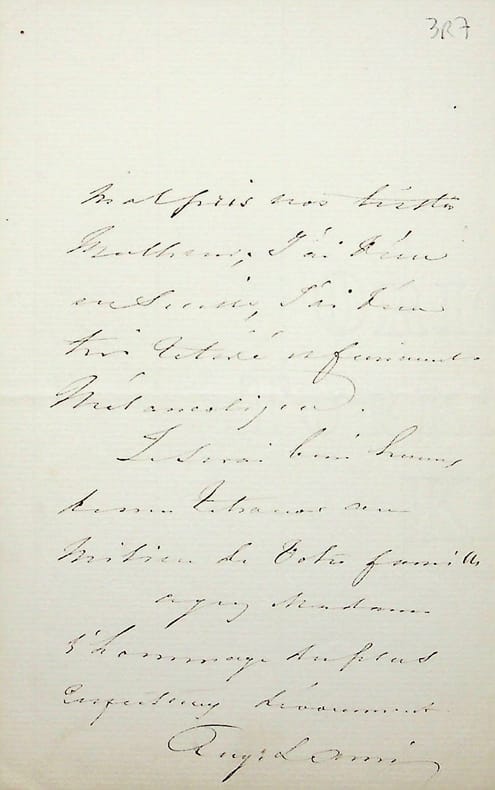 3R7
malgris nos tristes
Malheurs, J'ai vécu
en Suisse, J'ai vécu
très retiré et furieusement
Mélancolique.
Je serai bien heureux
de me retrouver au
Milieu de Votre famille
agréez Madame
l'hommage du plus
respectueux dévouement
Eug. Lami